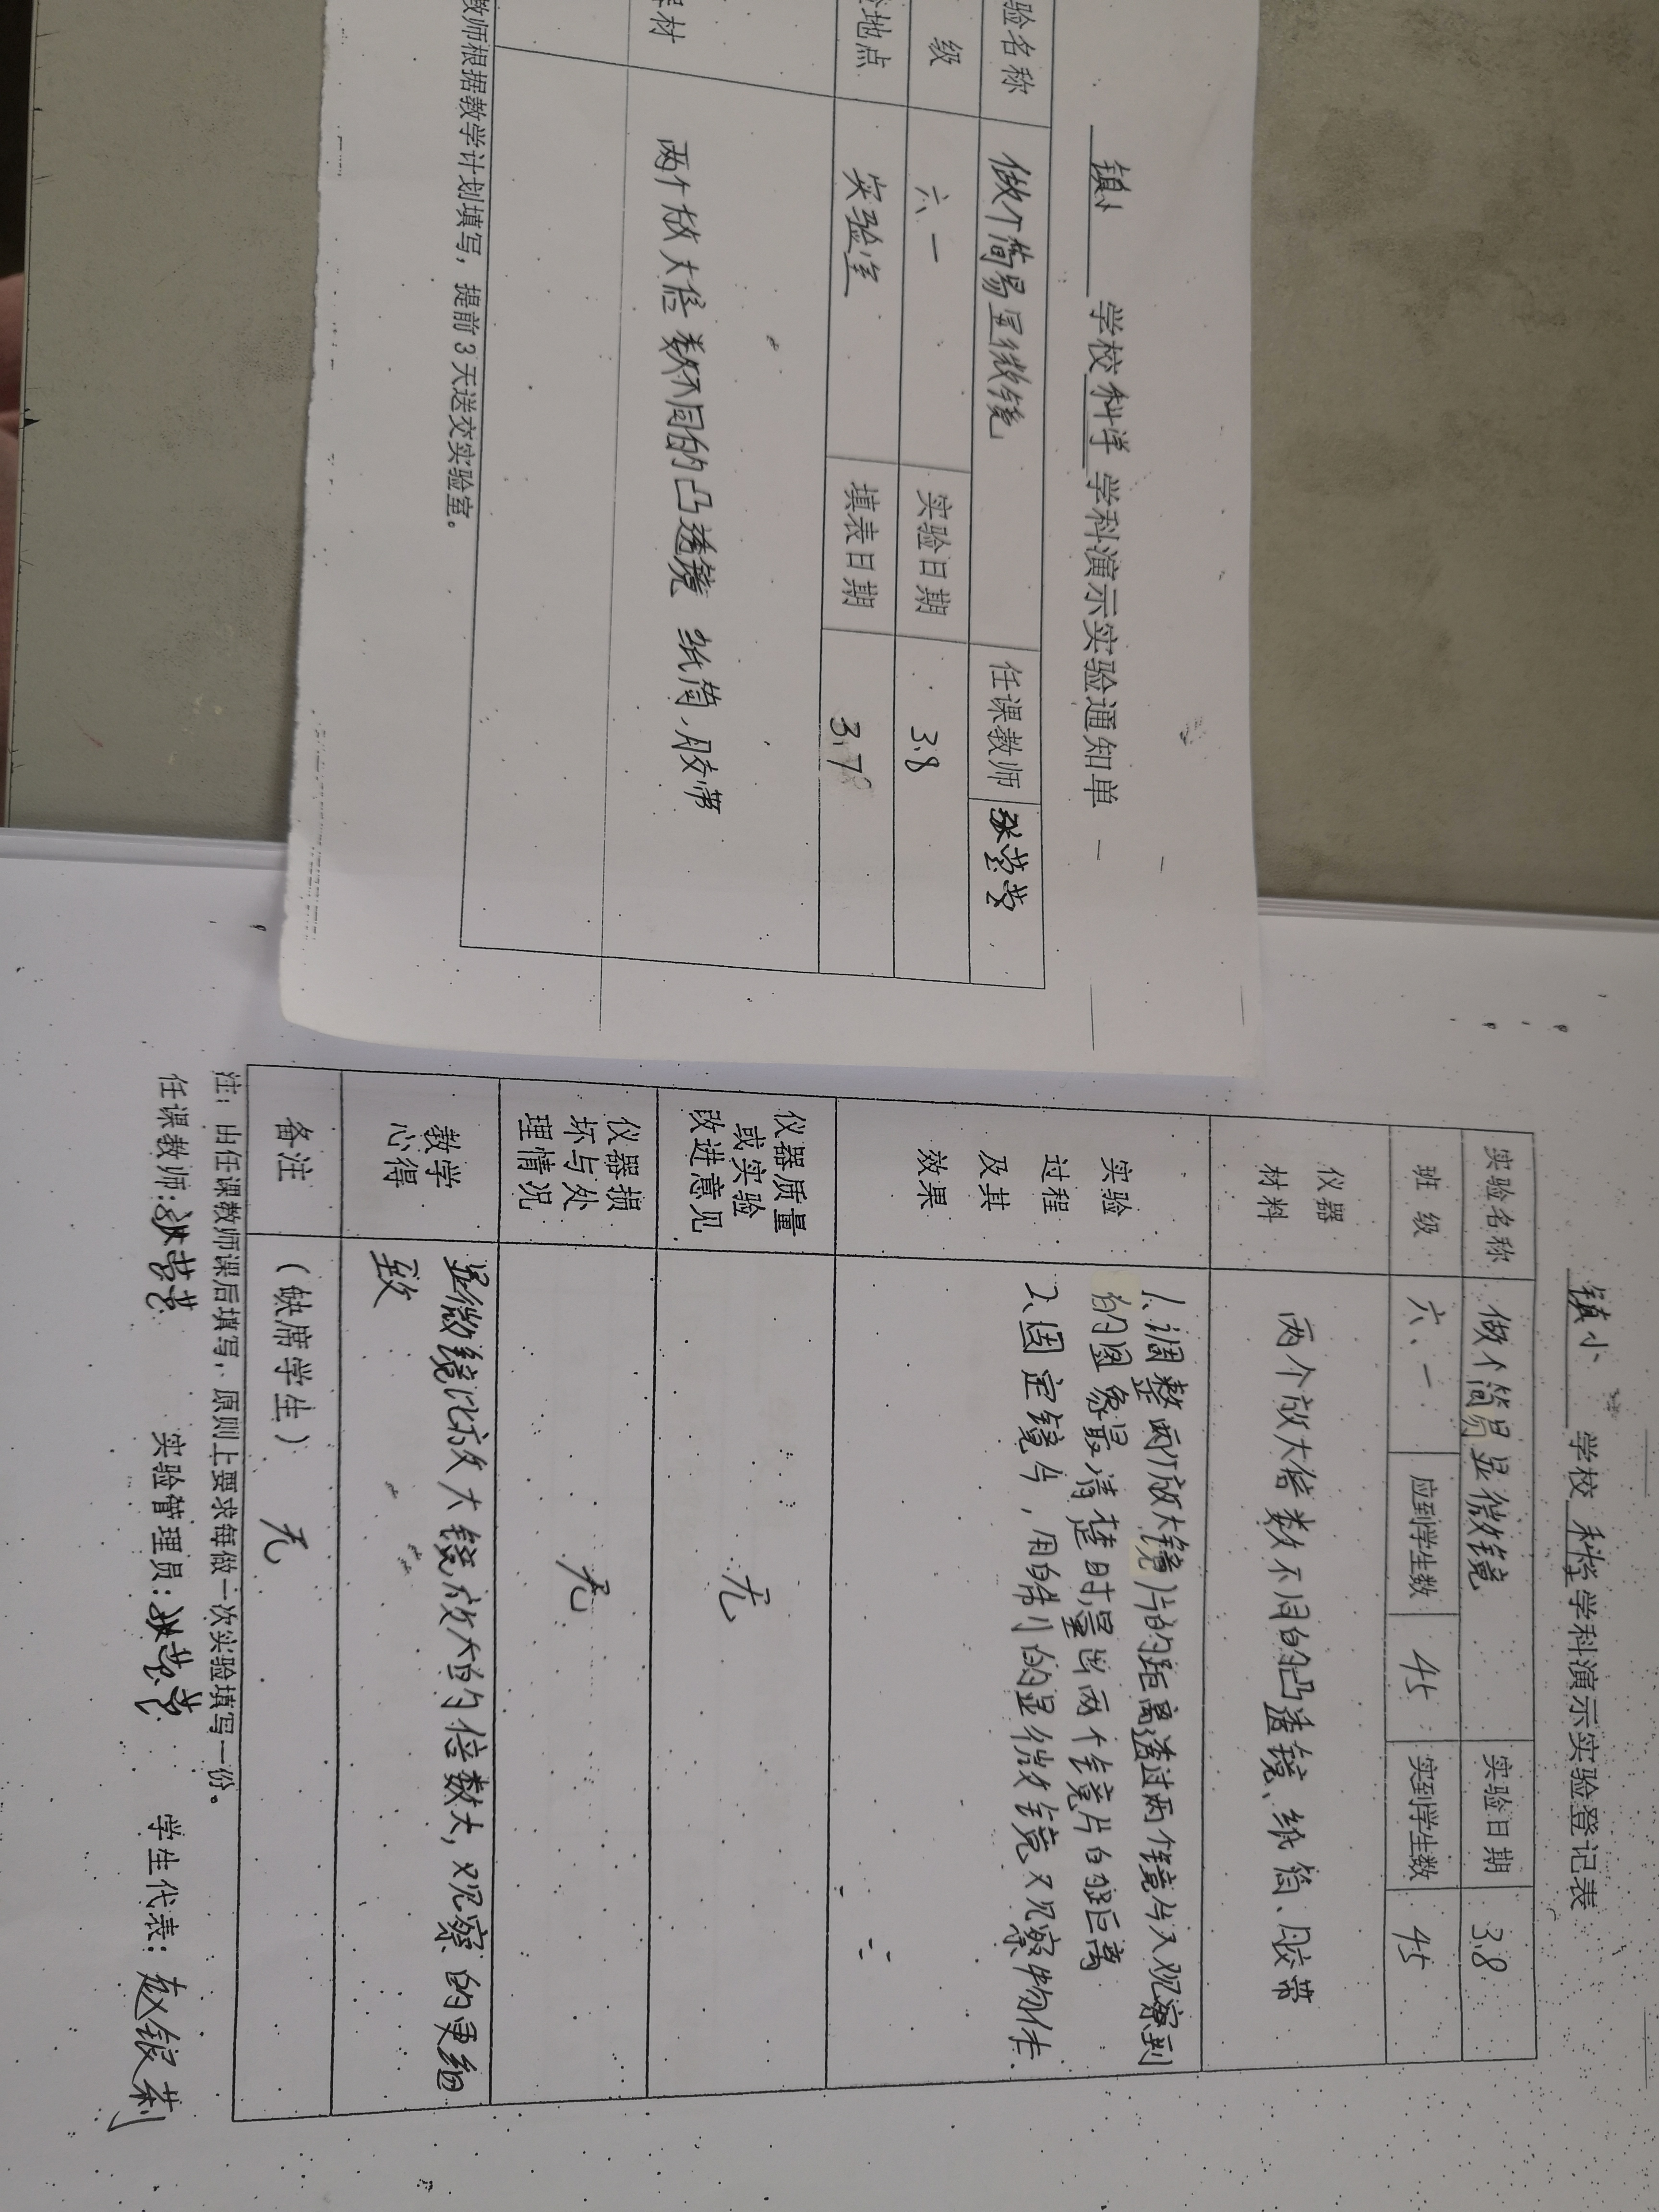 镇小 学校 科学 学科演示实验通知单
验名称 做个简易显微镜 任课教师 张营营
级 六、一 实验日期 3.8
地点 实验室 填表日期 3.7
材 两个放大倍数不同的凸透镜 纸筒、胶带
教师根据教学计划填写，提前3天送交实验室。
镇小 学校 科学 学科演示实验登记表
实验名称 做个简易显微镜 实验日期 3.8
班级 六、一 应到学生数 45 实到学生数 45
仪器
材料
两个放大倍数不同的凸透镜、纸筒、胶带
实验
过程
及其
效果
1、调整两个放大镜片的距离透过两个镜片观察到
的图象最清楚时量出两个镜片的距离
2、固定镜片，用自制的显微镜观察物体.
仪器质量
或实验
改进意见
无
仪器损
坏与处
理情况
无
教学
心得
显微镜比放大镜放大的倍数大，观察的更细
致
备注 （缺席学生） 无
注：由任课教师课后填写，原则上要求每做一次实验填写一份。
任课教师：张营营 实验管理员：张营营 学生代表：赵银莉